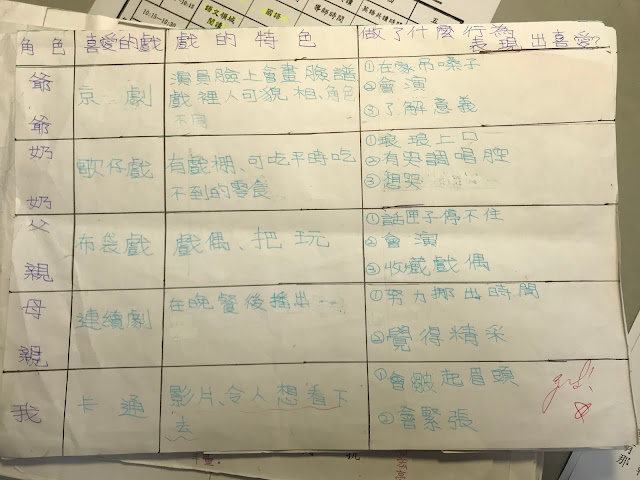 10:15~10:30
語文領域
閱讀
國語
導師時間
五
角色 喜愛的戲 戲的特色 做了什麼行為
表現出喜愛?
爺爺
京劇
演員臉上會畫臉譜
戲裡人可貌相、角色
不同
①在家吊嗓子
②會演
③了解意義
奶奶
歌仔戲
有戲棚、可吃平時吃
不到的零食
①琅琅上口
②有哭調唱腔
③想哭
父親
布袋戲
戲偶、把玩
①話匣子停不住
②會演
③收藏戲偶
母親
連續劇
在晚餐後播出……
①努力挪出時間
②覺得精采
我
卡通
影片、令人想看下
去
①會皺起眉頭
②會緊張